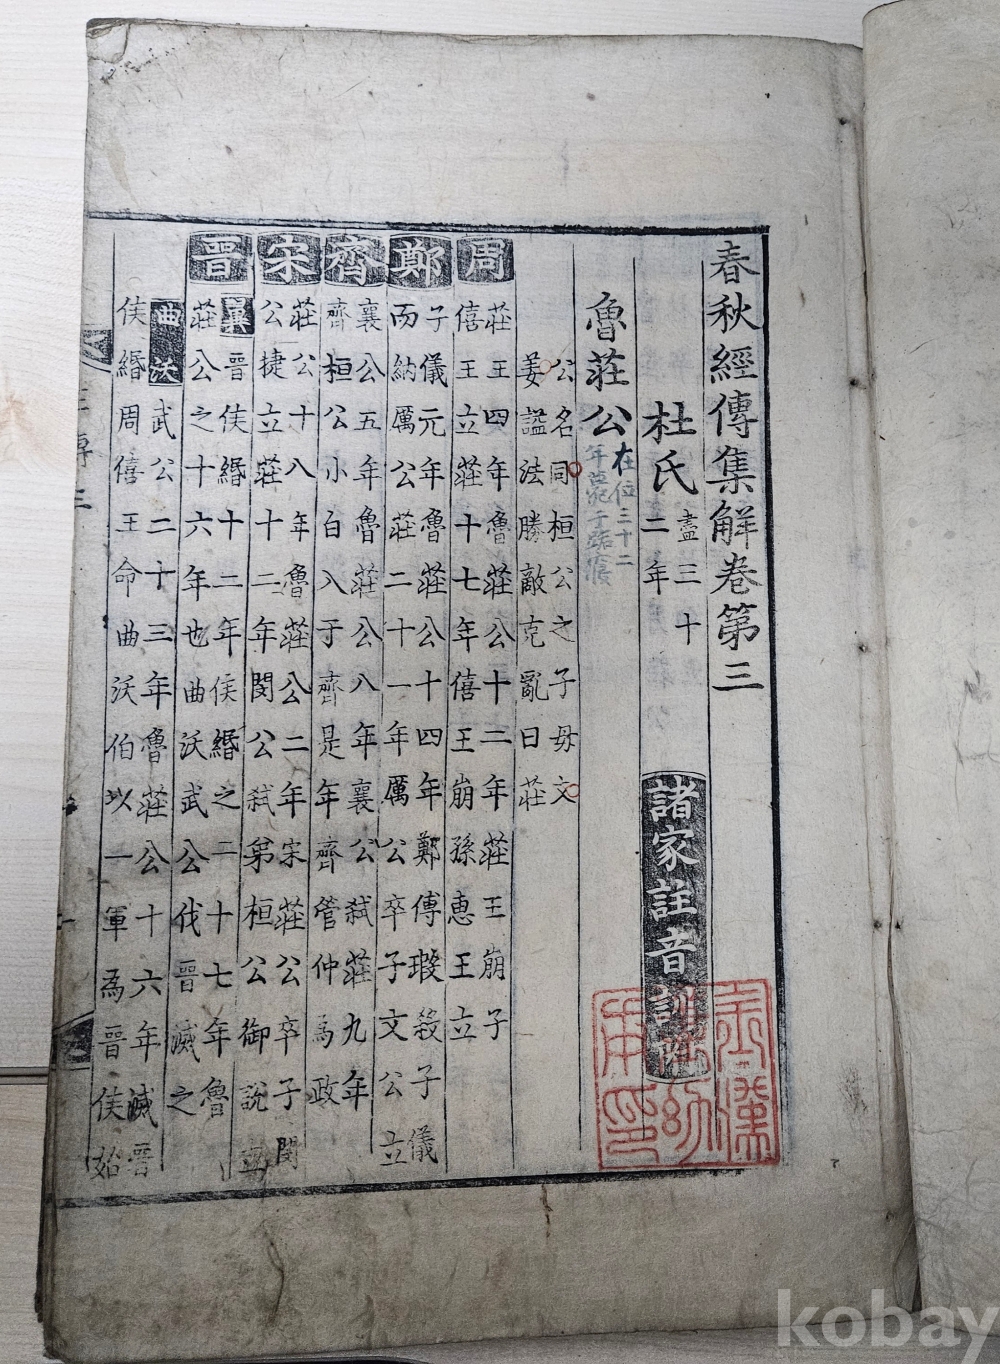 春秋經傳集解卷第三
杜氏
盡三十
二年
諸家註音訓附
魯莊公
在位三十二
公名同桓公之子母文
姜謚法勝敵克亂曰莊
周
莊王四年魯莊公十二年莊王崩子
僖王立莊十七年僖王崩孫惠王立
鄭
子儀元年魯莊公十四年鄭傅瑕殺子儀
而納厲公莊二十一年厲公卒子文公立
齊
襄公五年魯莊公八年襄公弒莊九年
齊桓公小白入于齊是年齊管仲為政
宋
莊公十八年魯莊公二年宋莊公卒子閔
公捷立莊十二年閔公弒弟桓公御說立
晉
翼晉侯緡十二年侯緡之二十七年魯
莊公之十六年也曲沃武公伐晉滅之
曲沃武公二十三年魯莊公十六年滅晉
侯緡周僖王命曲沃伯以一軍為晉侯始
kobay